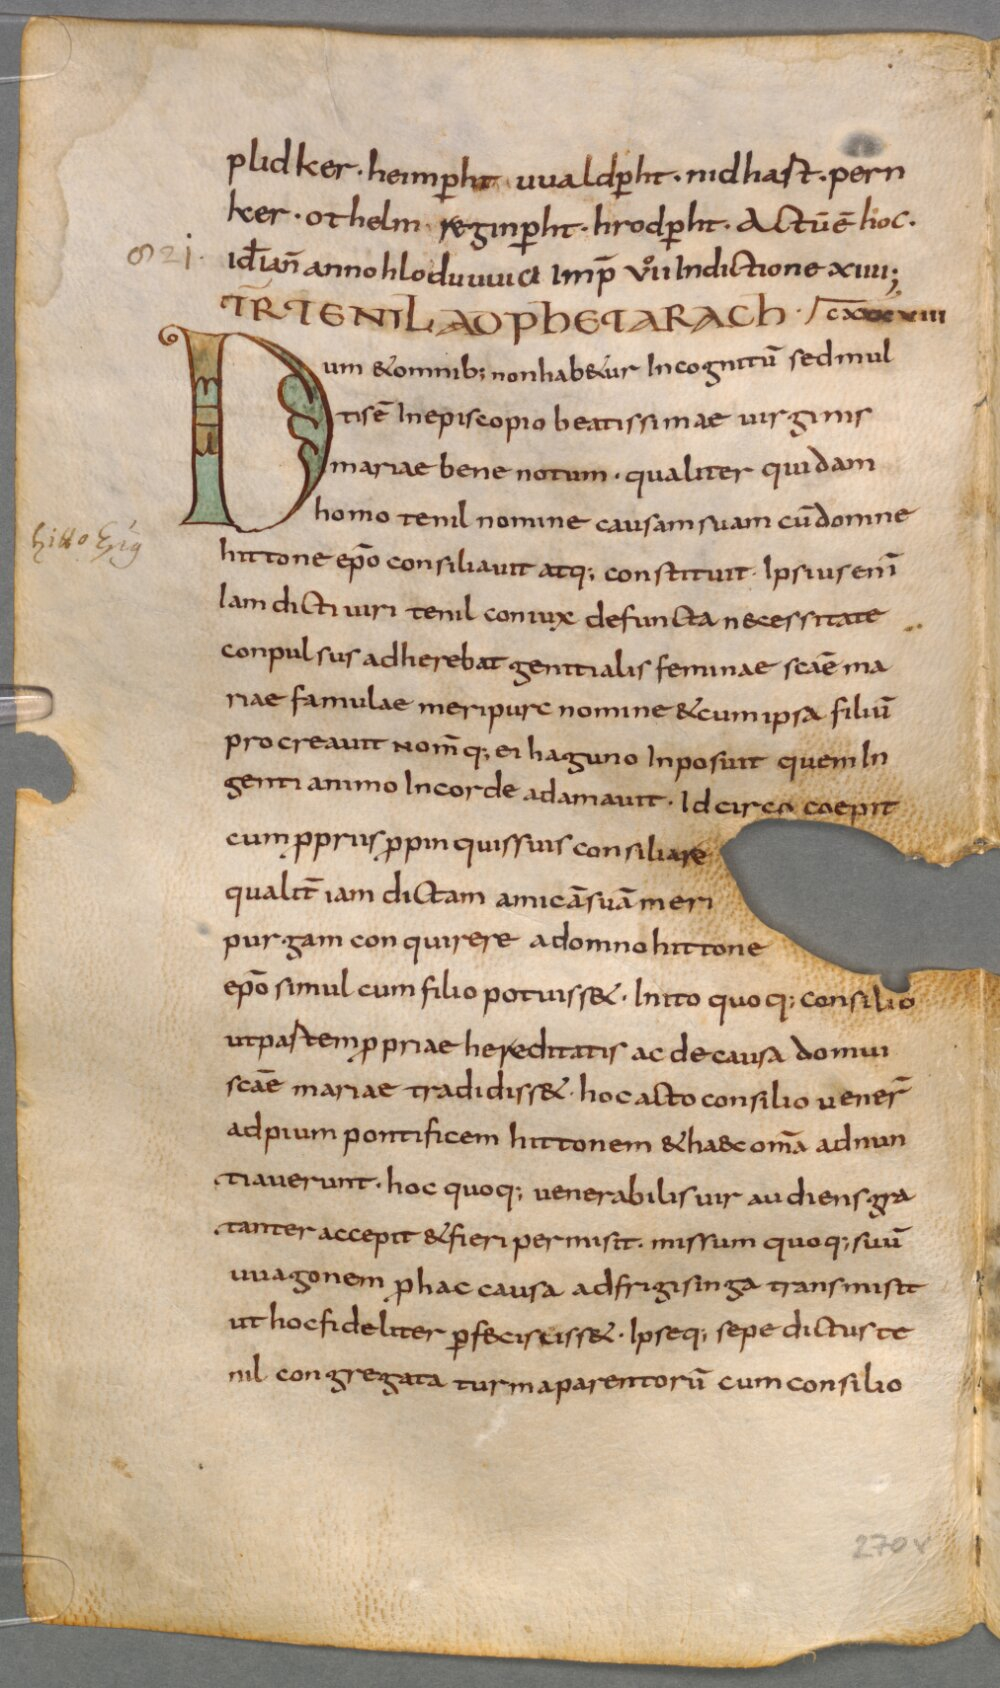 plidker · heimp̄ht uualdp̄ht · nidhast · pern
ker · othelm reginp̄ht · hrodp̄ht · Actū ē hoc ·
821 · id̄ ian̄ anno hloduuuici Imp̄ VIII Indictione xiiii;
TR̄ TENIL AD PHETARACH ·
Dum & omnib; non hab&ur Incognitū sed mul
tis ē In episcopio beatissimae uirginis
mariae bene notum · qualiter quidam
homo tenil nomine causam suam cū domne
hitto
hittone ep̄o consiliauit atq; constituit · Ipsius enī
Iam dicti uiri tenil coniux defuncta n&cessitate
conpulsus adherebat genitialis feminae scāe ma
riae famulae meripurc nomine & cum ipsa filiū
procreauit Nom̄q; ei haguno Inposuit quem In
genti animo In corde adamauit · Id circo coepit
cum p̱priis p̱pinquis suis consiliare
qualit̄ iam dictam amicā suā meri
purgam conquirere a domno hittone
ep̄o simul cum filio potuiss& · Inito quoq; consilio
ut pastem p̱priae hereditatis ac de causa domui
scāe mariae tradidiss& · hoc acto consilio uener̄
ad pium pontificem hittonem & ha&c om̄a adnun
tiauerunt · hoc quoq; uenerabilis uir audiens gra
tanter accepit & fieri permisit · missum quoq; suū
uuagonem p̱ hac causa ad frigisinga transmisit
ut hoc fideliter p̱f&cisciss& · Ipseq; sepe dictus te
nil congregata turma parentorū cum consilio
270v